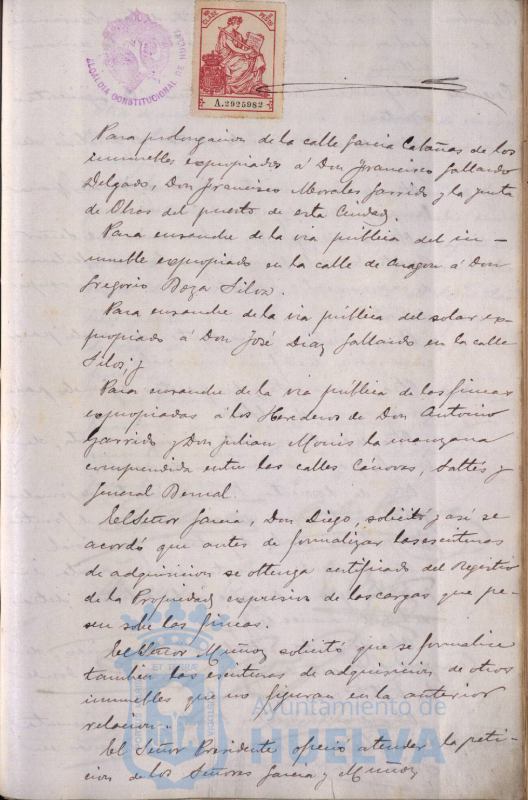 ALCALDIA CONSTITUCIONAL DE
CLASE
A.2925982
Para prolongacion de la calle Garcia Cabañas de los
inmuebles expropiados á Don Francisco Gallardo
Delgado, Don Francisco Morales Garrido y la Junta
de Obras del puerto de esta Ciudad.
Para ensanche de la via pública del in-
mueble expropiado en la calle de Aragon á Don
Gregorio Boza Silos.
Para ensanche de la via pública del solar ex-
propiado á Don José Diaz Gallardo en la calle
Silos; y
Para ensanche de la via pública de las fincas
expropiadas á los Herederos de Don Antonio
Garrido y Don Julian Monis la manzana
comprendida entre las calles Cánovas, Saltés y
General Bernal.
El Señor Garcia, Don Diego, solicitó y asi se
acordó que antes de formalizar las escrituras
de adquisicion se obtenga certificado del Registro
de la Propiedad expresivo de las cargas que pe-
sen sobre las fincas.
El Señor Muñoz solicitó que se formalice
tambien las escrituras de adquisicion de otros
inmuebles que no figuran en la anterior
relacion.
El Señor Presidente ofrecio atender la peti-
cion de los Señores Garcia y Muñoz
Ayuntamiento de
HUELVA